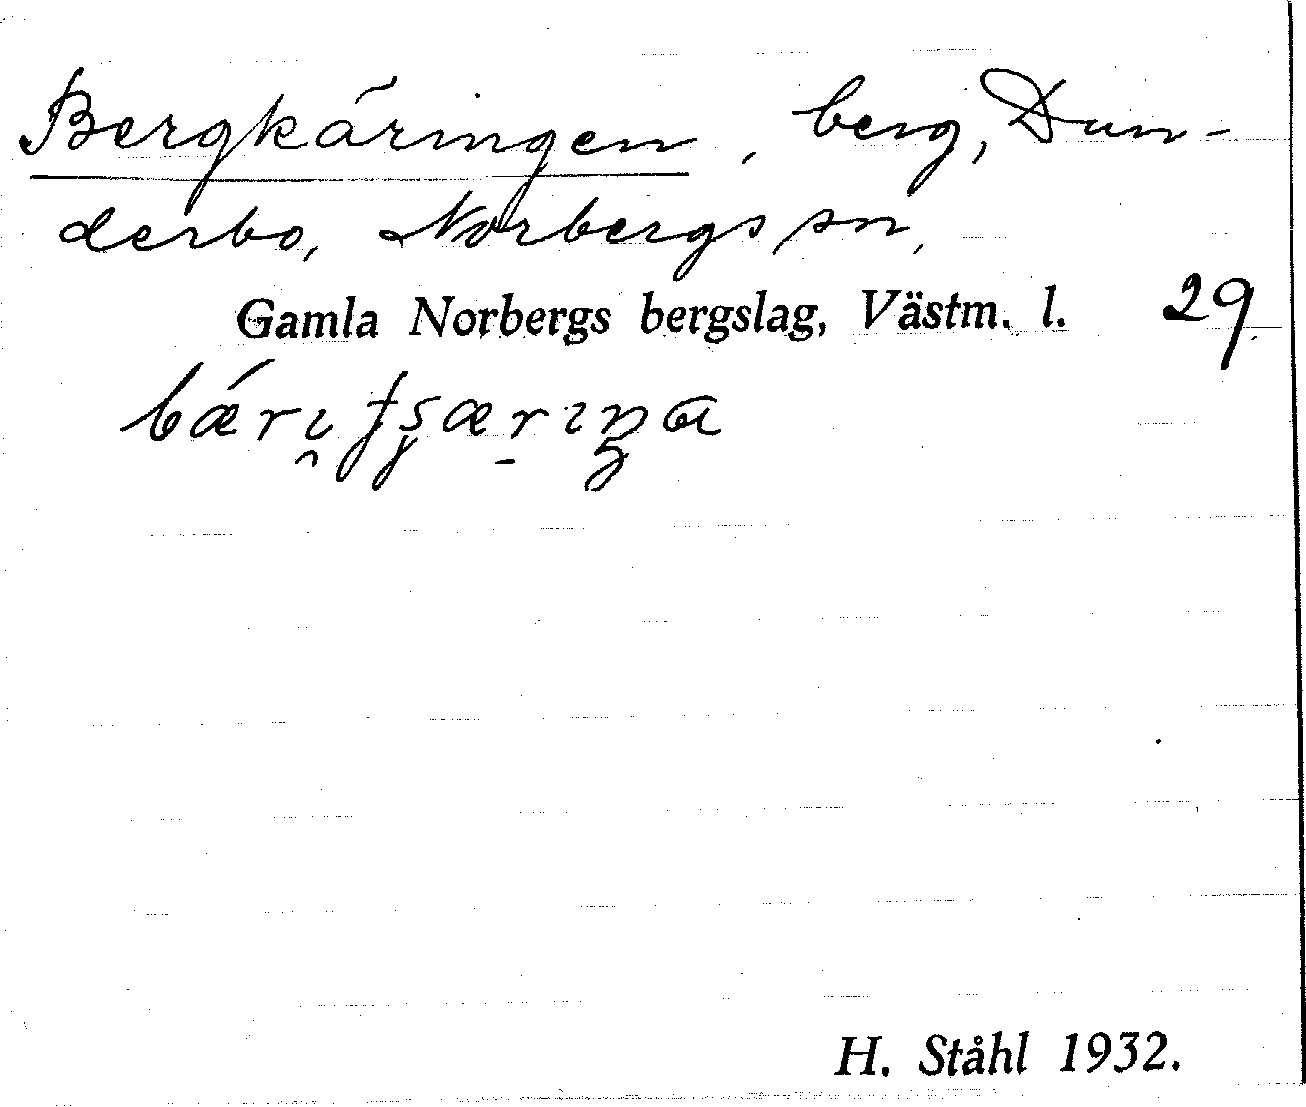 Bergkäringen, berg, Dun-
derbo, Norbergs sn,
Gamla Norbergs bergslag, Västm. l. 29
H. Ståhl 1932.